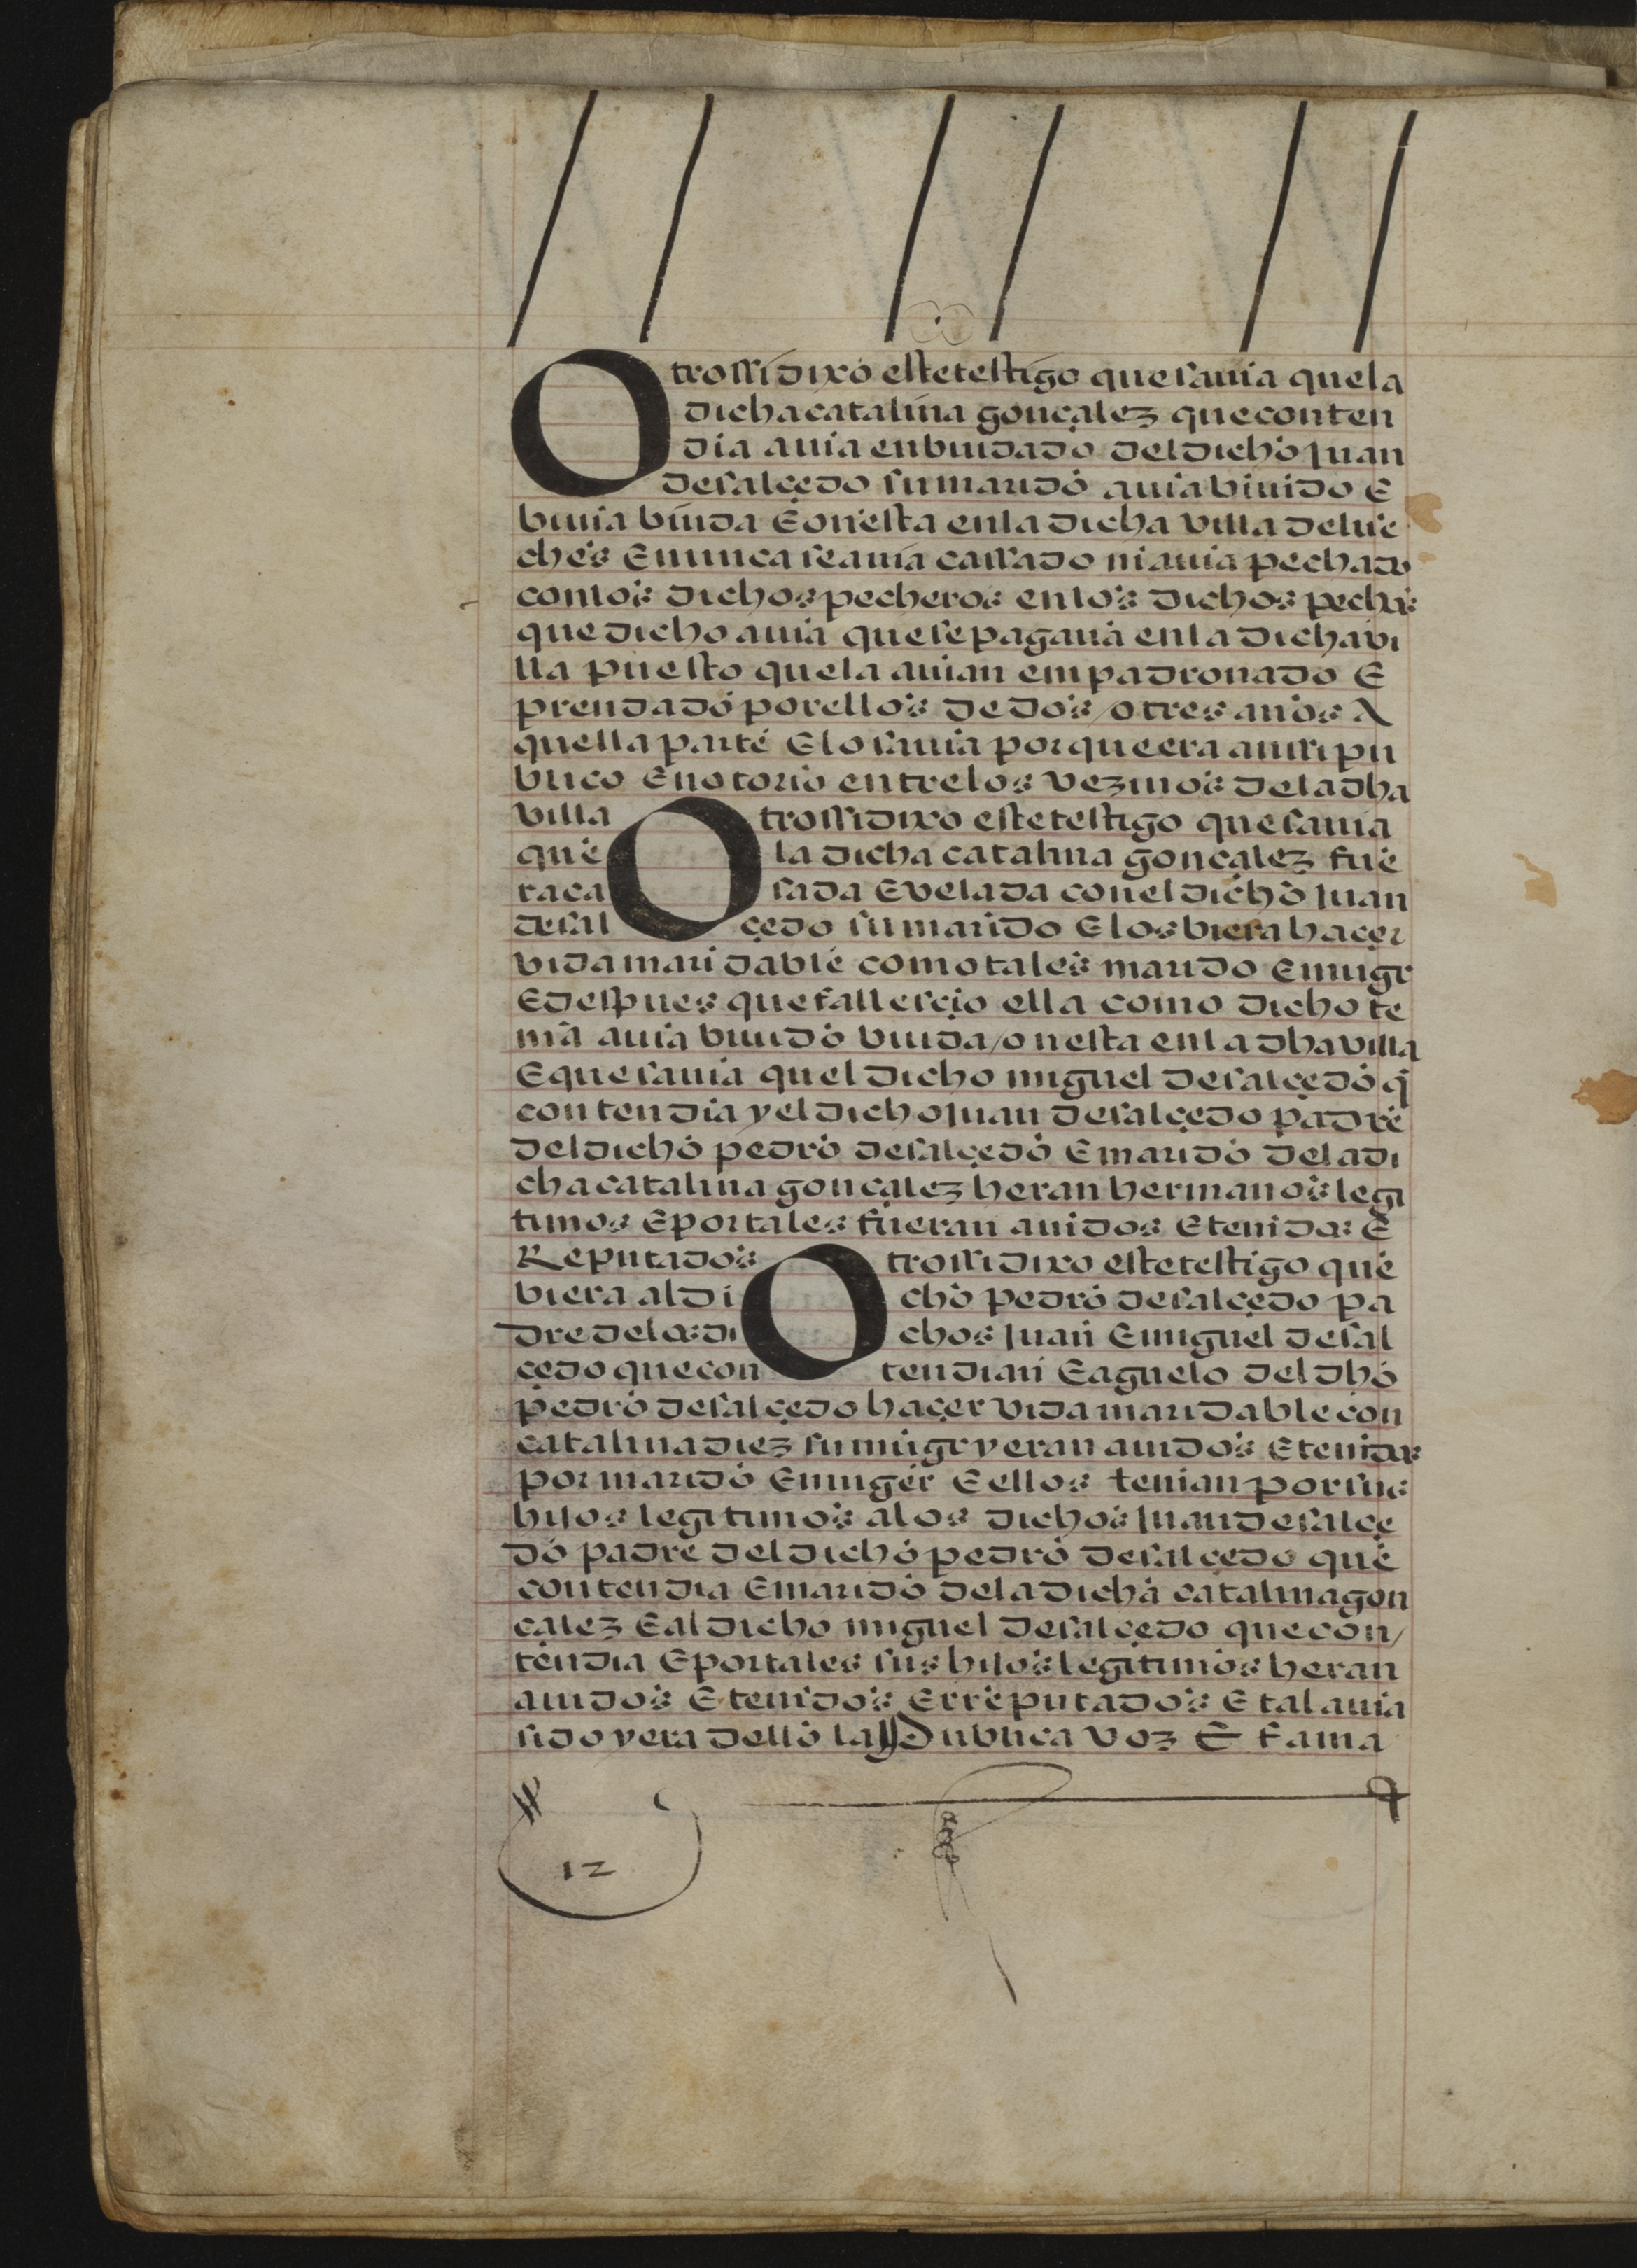 Otrossi dixo este testigo que sauia que la
dicha catalina gonçalez que conten
dia auia enbiudado del dicho juan
de salçedo su marido auia biuido E
biuia biuda E onesta en la dicha villa de lue
ches E nunca se auia cassado ni auia pechado
con los dichos pecheros en los dichos pechos
que dicho auia que se pagaua en la dicha vi
lla puesto que la auian empadronado E
prendado por ellos de dos / o tres años A
quella parte E lo sauia porque era ansi pu
blico E notorio entre los vezinos de la dha
villa Otrossi dixo este testigo que sauia
que la dicha catalina gonçalez fue
ra casada E velada con el dicho juan
de salçedo su marido E los biera haçer
vida maridable como tales marido E muger
E despues que fallesçio ella como dicho te
nia auia biuido biuda / onesta en la dha villa
E que sauia quel dicho miguel de salçedo q̃
contendia y el dicho juan de salçedo padre
del dicho pedro de salçedo E marido de la di
cha catalina gonçalez heran hermanos legi
timos E por tales fueran auidos E tenidos E
Reputados Otrossi dixo este testigo que
viera al dicho pedro de salçedo pa
dre de los dichos juan E miguel de sal
çedo que contendian E aguelo del dho
pedro de salçedo haçer vida maridable con
catalina diez su muger y eran auidos E tenidos
por marido E muger E ellos tenian por sus
hijos legitimos a los dichos juan de salçe
do padre del dicho pedro de salçedo que
contendia E marido de la dicha catalina gon
çalez E al dicho miguel de salçedo que con /
tendia E por tales sus hijos legitimos heran
auidos E tenidos E rreputados E tal auia
sido y era dello la Publica voz E fama
12